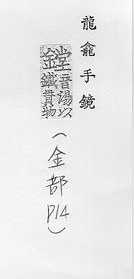 龍龕手鏡
鏜 音湯以
鐵貫物
（金部
P14）